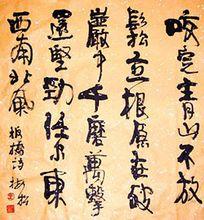 咬定青山不放
鬆立根原在破
巖中千磨萬擊
還堅勁任尔東
西南北風
板橋詩